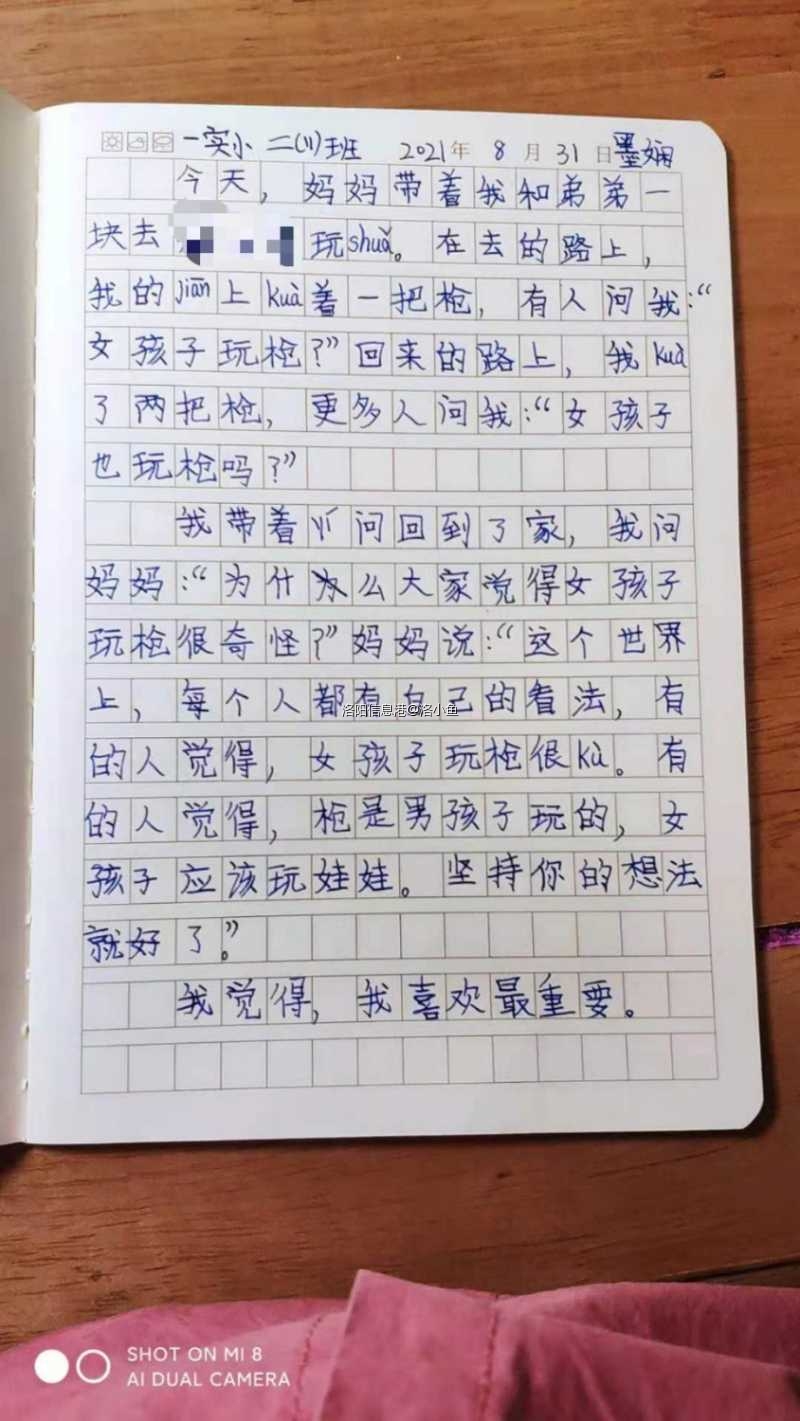 一实小 二(11)班 2021年 8月31日 墨娴
今天，妈妈带着我和弟弟一
块去 玩shuǎ。在去的路上，
我的jiān上kuà着一把枪，有人问我：“
女孩子玩枪？”回来的路上，我kuà
了两把枪，更多人问我：“女孩子
也玩枪吗？”
我带着yí问回到了家，我问
妈妈：“为什么大家觉得女孩子
玩枪很奇怪？”妈妈说：“这个世界
上，每个人都有自己的看法，有
洛阳信息港@洛小鱼
的人觉得，女孩子玩枪很kù。有
的人觉得，枪是男孩子玩的，女
孩子应该玩娃娃。坚持你的想法
就好了。”
我觉得，我喜欢最重要。
SHOT ON MI 8
AI DUAL CAMERA